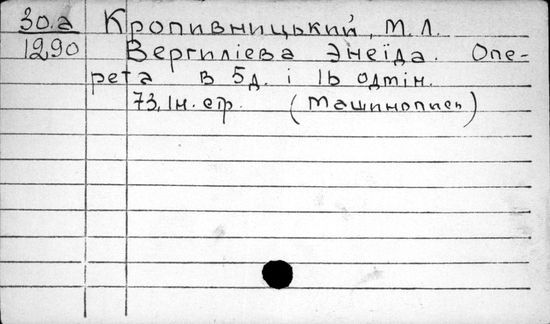 30.а Кропивницький, М. Л.
1290 Вергиліева Энеїда. Опе-
рета в 5д. і 16 одмін.
73, Ін. стр. (Машинопись)